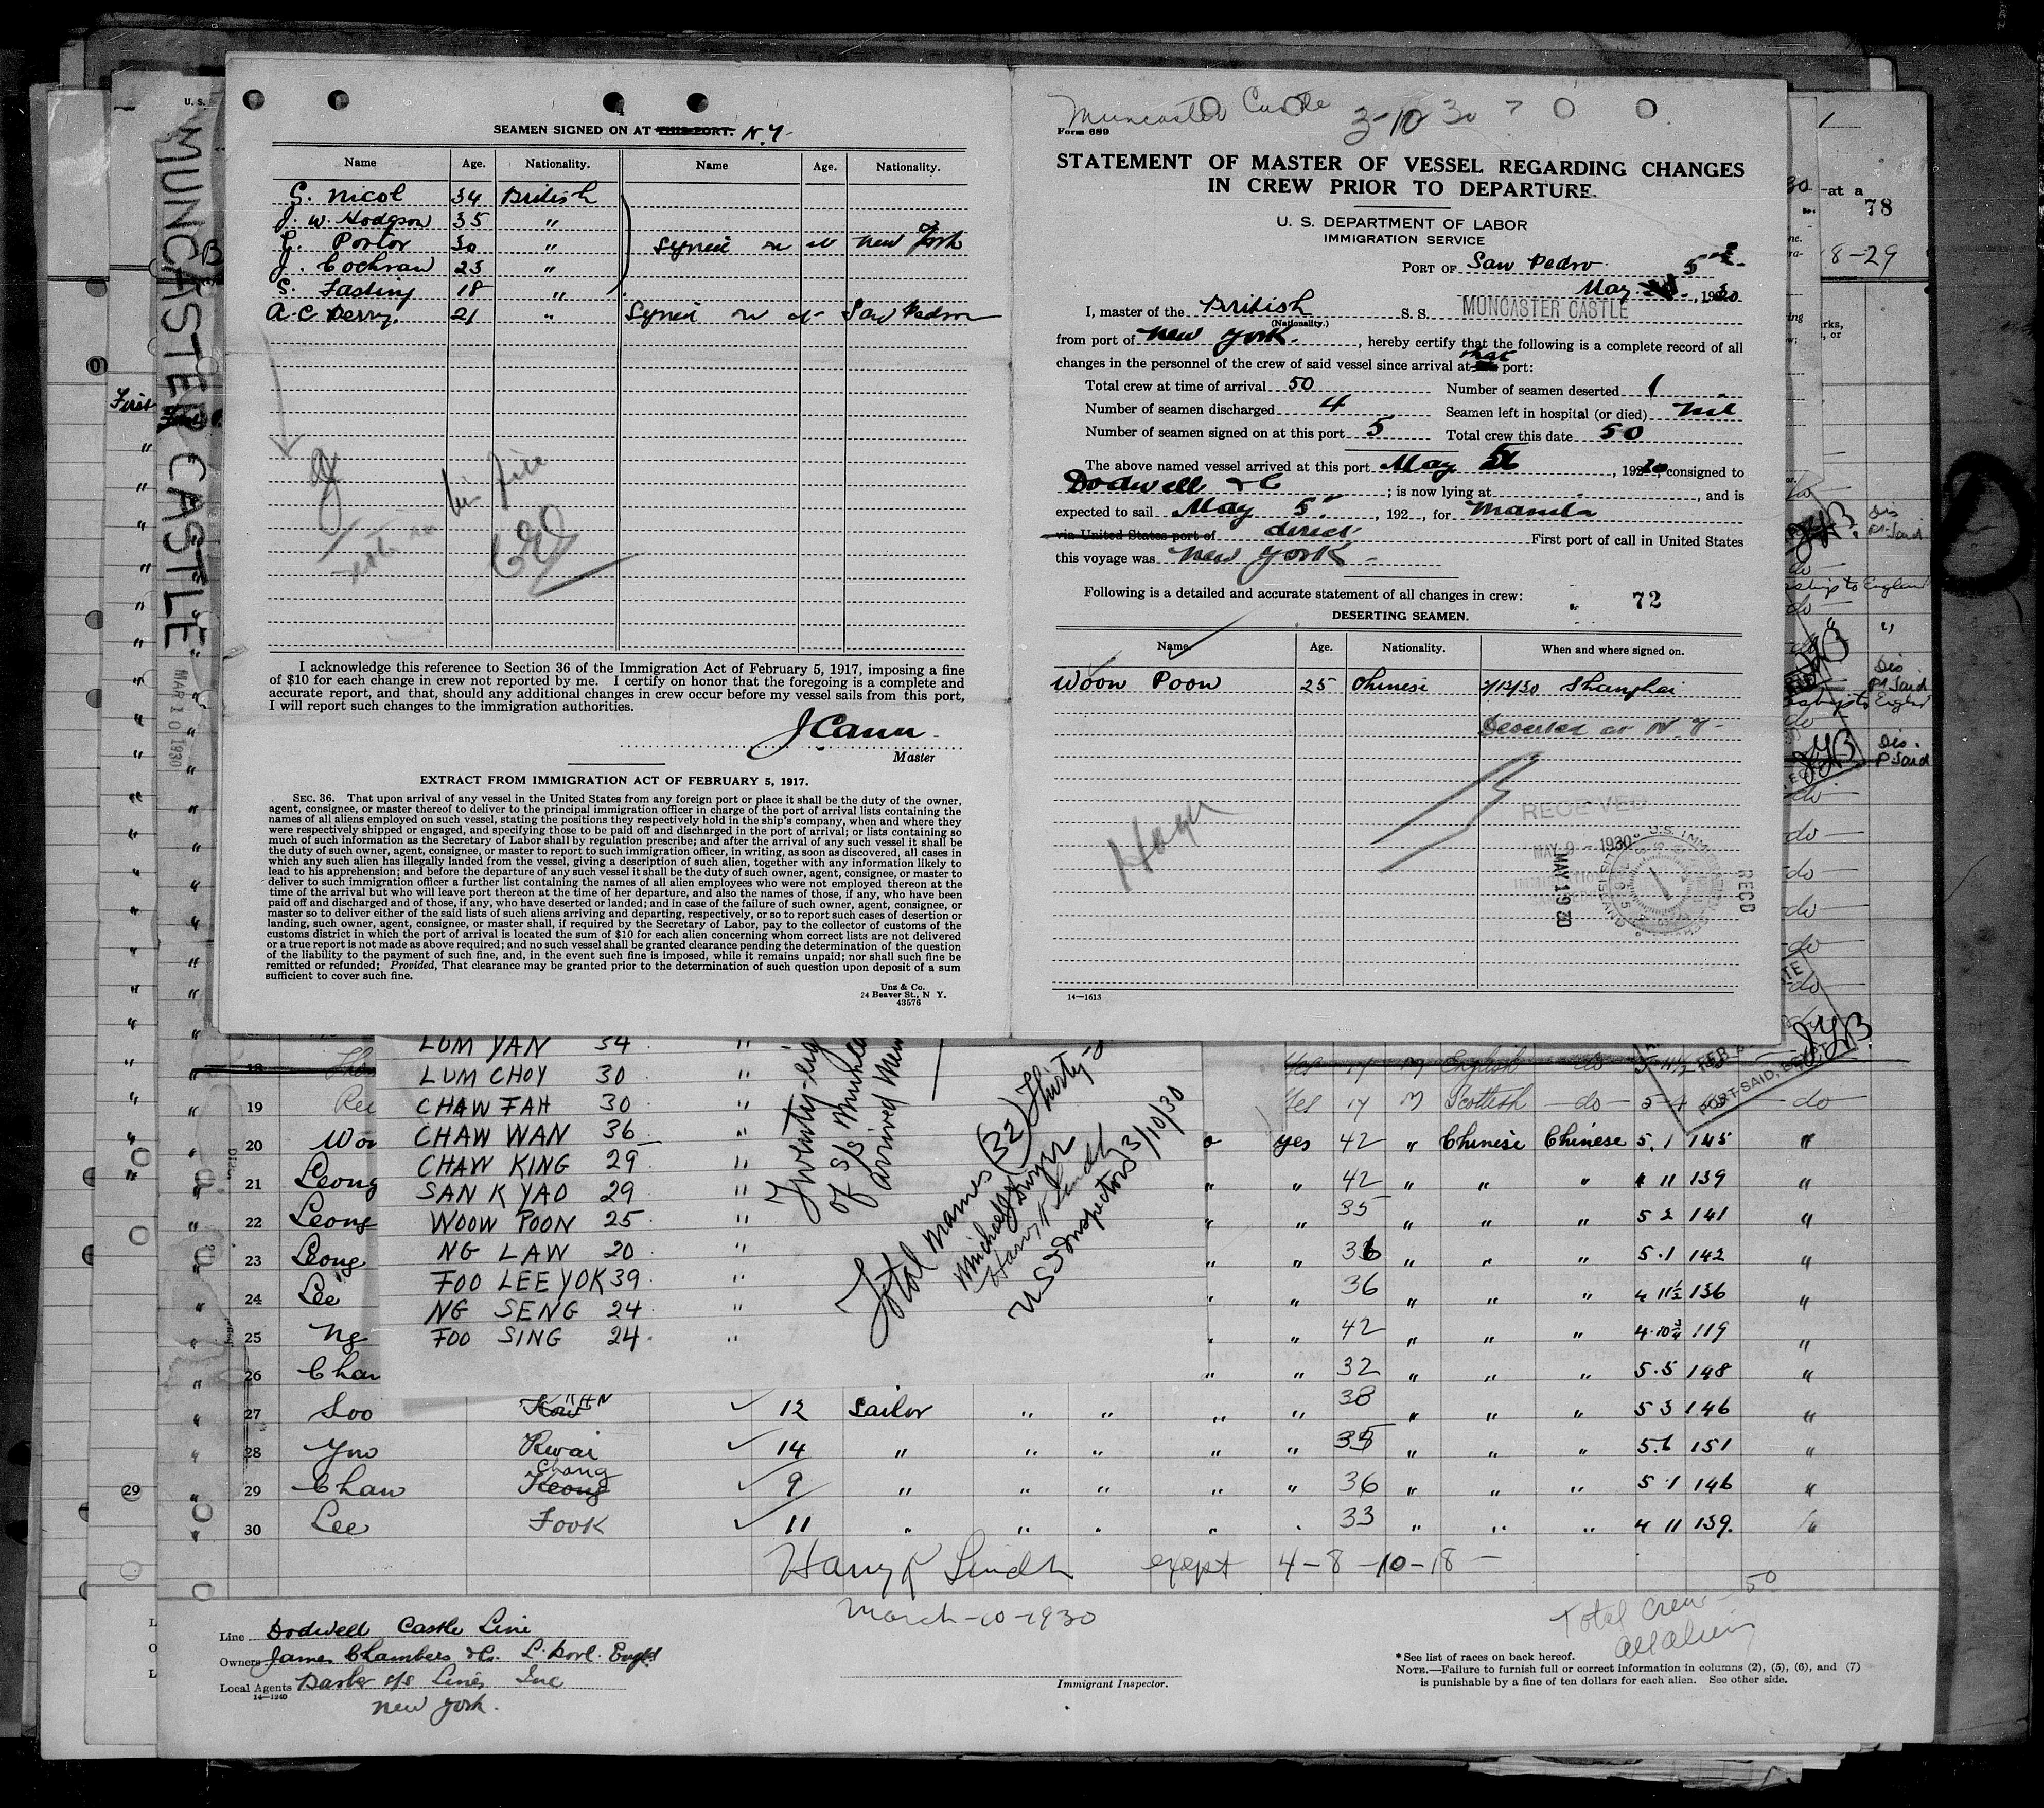 SEAMEN SIGNED ON AT THIS PORT. N.Y-
Name Age. Nationality. Name Age. Nationality.
G. Nicol 34 British
J. W. Hodgson 35 "
Porter 30 " Signed on at New York
J. Cochran 23 "
S. Fasting 18 "
A. C. Derry. 21 " Signed on at San Pedro
I acknowledge this reference to Section 36 of the Immigration Act of February 5, 1917, imposing a fine
of $10 for each change in crew not reported by me. I certify on honor that the foregoing is a complete and
accurate report, and that, should any additional changes in crew occur before my vessel sails from this port,
I will report such changes to the immigration authorities.
J Cann
Master
EXTRACT FROM IMMIGRATION ACT OF FEBRUARY 5, 1917.
SEC. 36. That upon arrival of any vessel in the United States from any foreign port or place it shall be the duty of the owner,
agent, consignee, or master thereof to deliver to the principal immigration officer in charge of the port of arrival lists containing the
names of all aliens employed on such vessel, stating the positions they respectively hold in the ship's company, when and where they
were respectively shipped or engaged, and specifying those to be paid off and discharged in the port of arrival; or lists containing so
much of such information as the Secretary of Labor shall by regulation prescribe; and after the arrival of any such vessel it shall be
the duty of such owner, agent, consignee, or master to report to such immigration officer, in writing, as soon as discovered, all cases in
which any such alien has illegally landed from the vessel, giving a description of such alien, together with any information likely to
lead to his apprehension; and before the departure of any such vessel it shall be the duty of such owner, agent, consignee, or master to
deliver to such immigration officer a further list containing the names of all alien employees who were not employed thereon at the
time of the arrival but who will leave port thereon at the time of her departure, and also the names of those, if any, who have been
paid off and discharged and of those, if any, who have deserted or landed; and in case of the failure of such owner, agent, consignee, or
master so to deliver either of the said lists of such aliens arriving and departing, respectively, or so to report such cases of desertion or
landing, such owner, agent, consignee, or master shall, if required by the Secretary of Labor, pay to the collector of customs of the
customs district in which the port of arrival is located the sum of $10 for each alien concerning whom correct lists are not delivered
or a true report is not made as above required; and no such vessel shall be granted clearance pending the determination of the question
of the liability to the payment of such fine, and, in the event such fine is imposed, while it remains unpaid; nor shall such fine be
remitted or refunded; Provided, That clearance may be granted prior to the determination of such question upon deposit of a sum
sufficient to cover such fine.
Unz & Co.
24 Beaver St., N Y.
43576
Muncaster Castle 3-10 30
Form 689
STATEMENT OF MASTER OF VESSEL REGARDING CHANGES
IN CREW PRIOR TO DEPARTURE.
U. S. DEPARTMENT OF LABOR
IMMIGRATION SERVICE
PORT OF San Pedro
May 5th, 1930
I, master of the British S. S. MUNCASTER CASTLE
(Nationality.)
from port of New York., hereby certify that the following is a complete record of all
changes in the personnel of the crew of said vessel since arrival at that port:
Total crew at time of arrival 50 Number of seamen deserted 1
Number of seamen discharged 4 Seamen left in hospital (or died) nil
Number of seamen signed on at this port 5 Total crew this date 50
The above named vessel arrived at this port May 5, 1930, consigned to
Dodwell & C; is now lying at , and is
expected to sail May 5th, 192 , for Manila
via United States port of direct First port of call in United States
this voyage was New York -
Following is a detailed and accurate statement of all changes in crew: 72
DESERTING SEAMEN.
Name. Age. Nationality. When and where signed on.
Woon Poon 25 Chinese 2/12/30 Shanghai
Deserted at N. Y-
RECEIVED
MAY 9 - 1930
MAY 19 30
RECD
14—1613
MUNCASTER CASTLE
MAR 10 1930
U. S.
First
at a
78
8-29
Dis
Pt Said
Dis
Pt Said
Dis.
P. Said
JYB
PORT-SAID, EGYPT
LUM YAN 34 "
LUM CHOY 30 "
CHAW FAH 30 "
CHAW WAN 36 "
CHAW KING 29 "
SAN K YAO 29 "
WOOW POON 25 "
NG LAW 20 "
FOO LEE YOK 39 "
NG SENG 24 "
FOO SING 24 "
Total names (32) Thirty-
Michael J Dwyer
Harry K Lindh
U S Inspectors 3/10/30
18 English do
19 yes 17 M Scottish do 5-4 do
20 yes 42 " Chinese Chinese 5.1 145 "
21 Leong " 42 " " " 4 11 139 "
22 Leong " 35 " " " 5 2 141 "
23 Leong " 36 " " " 5.1 142 "
24 Lee " 36 " " " 4 11½ 136 "
25 Ng " 42 " " " 4.10¾ 119 "
26 Chan " 32 " " " 5.5 148 "
27 Soo KAN 12 Sailor " " " " 38 " " " 5 3 146 "
28 Yno Kwai 14 " " " " " 35 " " " 5.6 151 "
29 Chan Keong Chang 9 " " " " " 36 " " " 5.1 146 "
30 Lee Fook 11 " " " " " 33 " " " 4 11 139. "
Harry K Lindh except 4-8-10-18-
March-10-1930
Total Crew 50
all aliens
Line Dodwell Castle Line
Owners James Chambers & Co. L.pool. Engld
Local Agents Barber S/S Lines Inc
14—1240
New York.
Immigrant Inspector.
*See list of races on back hereof.
NOTE.—Failure to furnish full or correct information in columns (2), (5), (6), and (7)
is punishable by a fine of ten dollars for each alien. See other side.